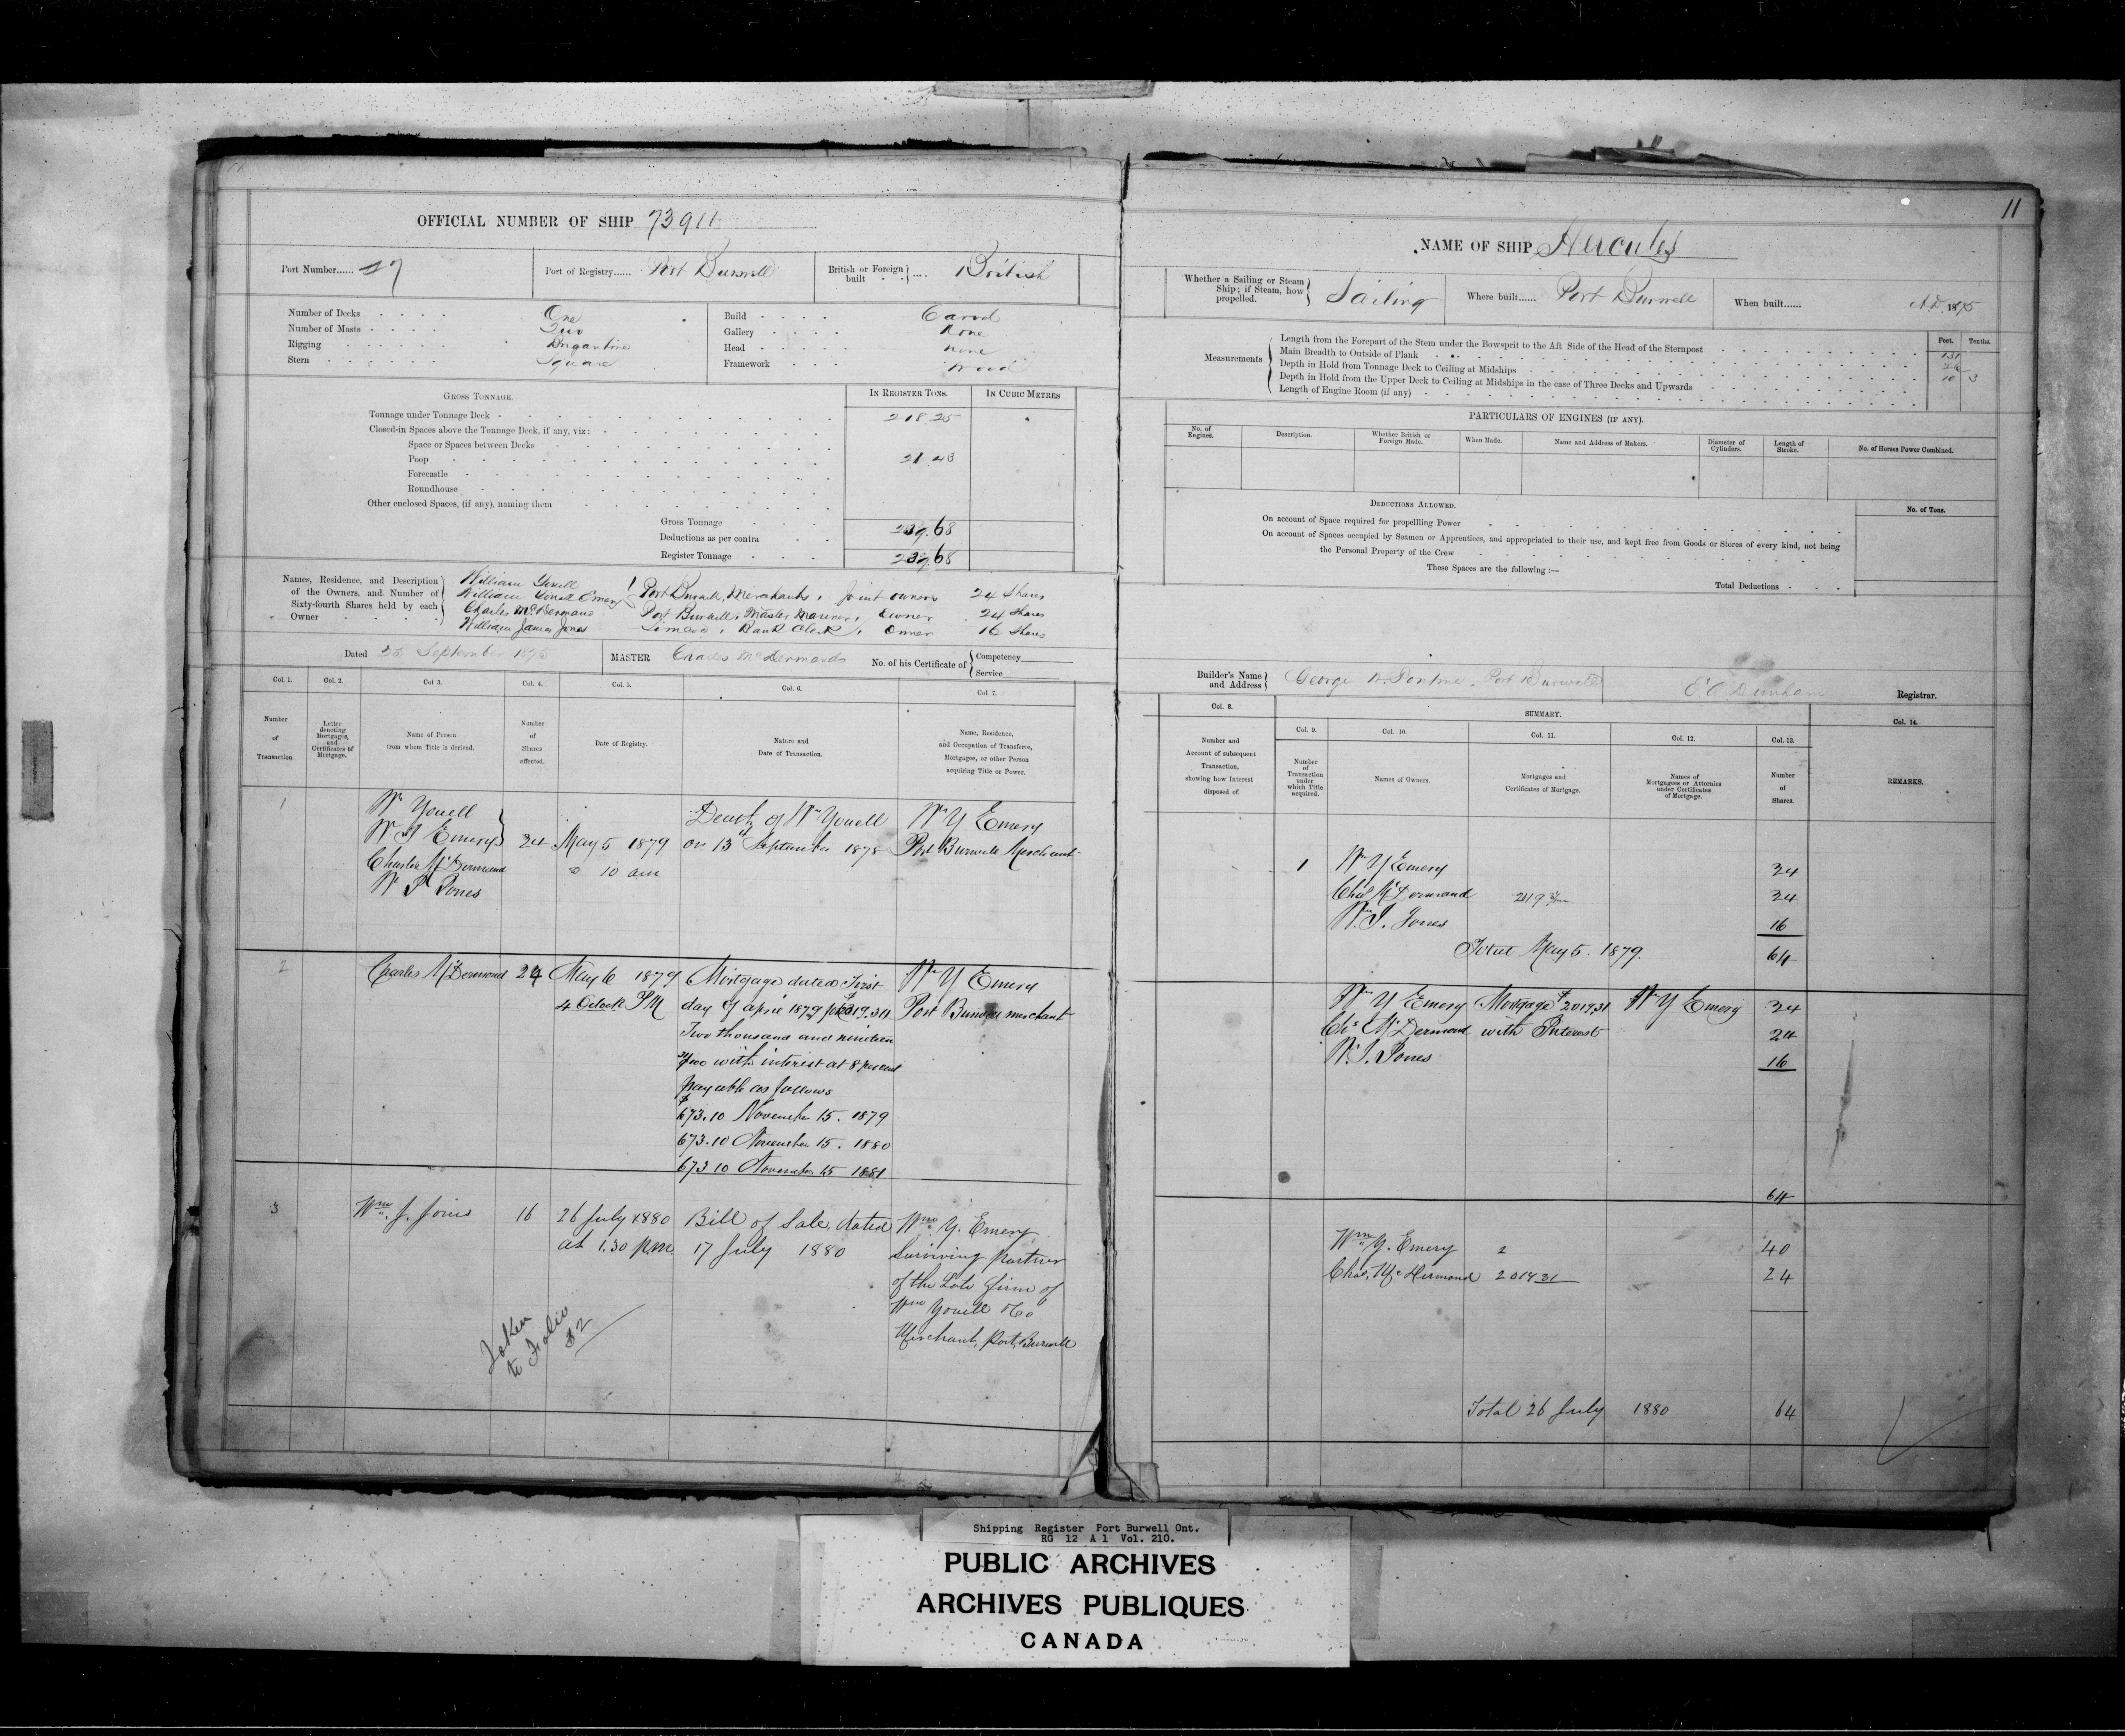 OFFICIAL NUMBER OF SHIP 73911
Port Number...... 27
Port of Registry...... Port Burwell
British or Foreign built } .... British
Number of Decks One
Number of Masts Two
Rigging Brigantine
Stern Square
Build Carvel
Gallery None
Head None
Framework Wood
GROSS TONNAGE.
IN REGISTER TONS.
IN CUBIC METRES
Tonnage under Tonnage Deck 218.25
Closed-in Spaces above the Tonnage Deck, if any, viz:
Space or Spaces between Decks
Poop 21.43
Forecastle
Roundhouse
Other enclosed Spaces, (if any), naming them
Gross Tonnage 239.68
Deductions as per contra
Register Tonnage 239.68
Names, Residence, and Description
of the Owners, and Number of
Sixty-fourth Shares held by each
Owner
William Youell
William Youell Emery } Port Burwell, Merchants, joint owners 24 Shares
Charles McDermand Port Burwell, Master Mariner, Owner 24 Shares
William James Jones Simcoe, Bank Clerk, Owner 16 Shares
Dated September
MASTER Charles McDermand
No. of his Certificate of { Competency
Service
Col. 1. Col. 2. Col 3. Col. 4. Col. 5. Col. 6. Col 7.
Number
of
Transaction
Letter
denoting
Mortgages,
and
Certificates of
Mortgage.
Name of Person
from whom Title is derived.
Number
of
Shares
affected.
Date of Registry.
Nature and
Date of Transaction.
Name, Residence,
and Occupation of Transferee,
Mortgagee, or other Person
acquiring Title or Power.
1
Wm Youell
Wm Y Emery }
Charles McDermand
Wm J Jones
24
May 5 1879
10 am
Death of Wm Youell
on 13th September 1878
Wm Y Emery
Port Burwell Merchant
2
Charles McDermand 24
May 6 1879
4 Oclock PM
Mortgage dated First
day of April 1879 for $2019.31
Two thousand and nineteen
31/100 with interest at 8 percent
payable as follows
$673.10 November 15. 1879
673.10 November 15. 1880
673 10 November 15 1881
Wm Y Emery
Port Burwell merchant
3
Wm. J. Jones 16
26 July 1880
at 1.30 p.m.
Bill of Sale, dated
17 July 1880
Wm. Y. Emery
Surviving Partner
of the Late firm of
Wm Youell & Co
Merchant, Port Burwell
Taken
to Folio
32
11
NAME OF SHIP Hercules
Whether a Sailing or Steam
Ship; if Steam, how
propelled. } Sailing
Where built...... Port Burwell
When built...... A.D. 1875
Feet. Tenths.
Measurements
Length from the Forepart of the Stem under the Bowsprit to the Aft Side of the Head of the Sternpost 131
Main Breadth to Outside of Plank 26
Depth in Hold from Tonnage Deck to Ceiling at Midships 10 3
Depth in Hold from the Upper Deck to Ceiling at Midships in the case of Three Decks and Upwards
Length of Engine Room (if any)
PARTICULARS OF ENGINES (IF ANY).
No. of
Engines.
Description.
Whether British or
Foreign Made.
When Made.
Name and Address of Makers.
Diameter of
Cylinders.
Length of
Stroke.
No. of Horses Power Combined.
DEDUCTIONS ALLOWED.
No. of Tons.
On account of Space required for propellling Power
On account of Spaces occupied by Seamen or Apprentices, and appropriated to their use, and kept free from Goods or Stores of every kind, not being
the Personal Property of the Crew
These Spaces are the following :—
Total Deductions
Builder's Name
and Address } George Port Burwell
Registrar.
Col. 8.
SUMMARY.
Col. 14.
Col. 9. Col. 10. Col. 11. Col. 12. Col. 13.
Number and
Account of subsequent
Transaction,
showing how Interest
disposed of.
Number
of
Transaction
under
which Title
acquired.
Names of Owners.
Mortgages and
Certificates of Mortgage.
Names of
Mortgagees or Attornies
under Certificates
of Mortgage.
Number
of
Shares.
REMARKS.
1 Wm Y Emery 24
Chas McDermand 24
Wm. J. Jones 16
Total May 5. 1879. 64
Wm Y Emery Mortgage $2019.31 Wm Y Emery 24
Chs McDermand with Interest 24
Wm J. Jones 16
64
Wm. Y. Emery 2 40
Chas. McDermand 2019 31 24
Total 26 July 1880 64
Shipping Register Port Burwell Ont.
RG 12 A 1 Vol. 210.
PUBLIC ARCHIVES
ARCHIVES PUBLIQUES
CANADA